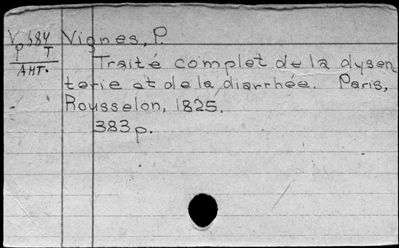 Vp 384 Vignes, P
T
AHT.
Traité complet de la dysen
terie et de la diarrhée. Paris,
Rousselon, 1825.
383 p.